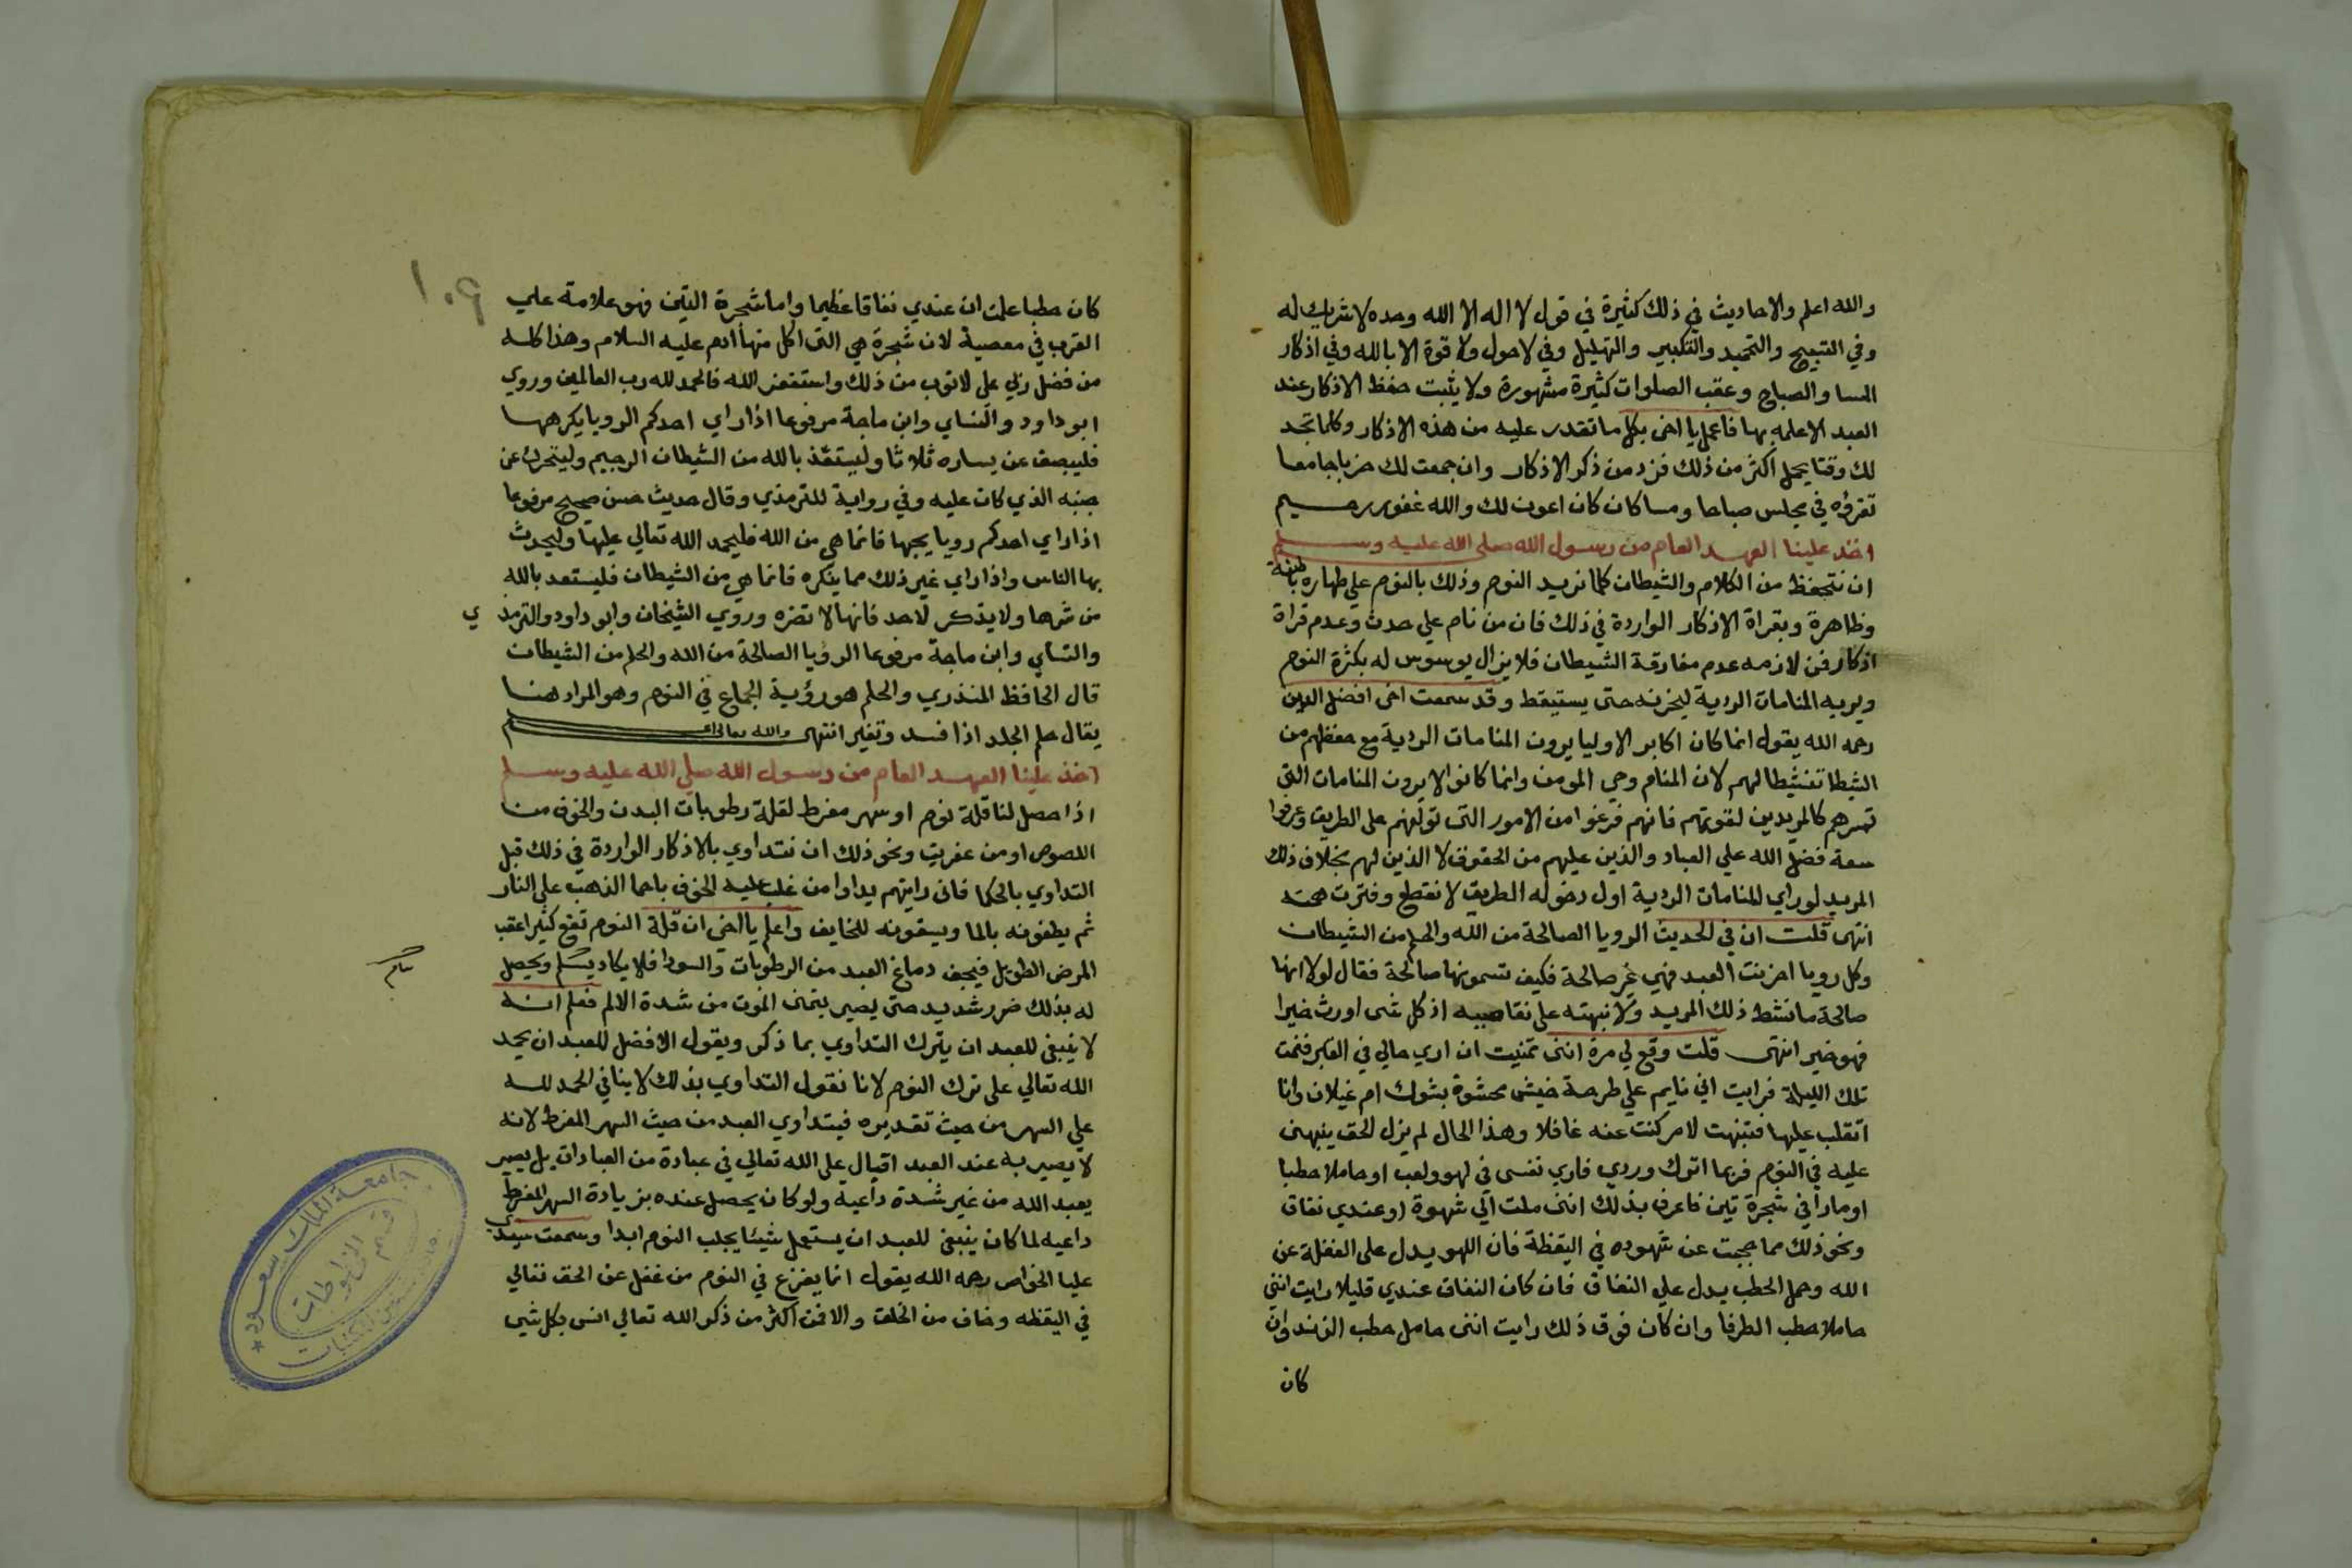 والله اعلم والاحاديث في ذلك كثيرة في قول لا اله الا الله وحده لا شريك له
وفي التسبيح والتحميد والتكبير والتهليل وفي لاحول ولا قوة الا بالله وفي اذكار
المسا والصباح وعقب الصلوات كثيرة مشهورة ولا يثبت حفظ الاذكار عند
العبد الا علمه بها فاعمل يا اخي بكل ما تقدر عليه من هذه الاذكار وكلما تجد
لك وقتا يحمل اكثر من ذلك فزد من ذكر الاذكار وان جمعت لك حزبا جامعا
تقرؤه في مجلس صباحا ومسا كان كان اعون لك والله غفور رحيم
اخذ علينا العهد العام من رسول الله صلى الله عليه وسلم
ان نتحفظ من الكلام والشيطان كلما نريد النوم وذلك بالنوم علي طهاره باطنة
وظاهرة وبقراة الاذكار الواردة في ذلك فان من نام علي حدث وعدم قراة
اذكار فمن لازمه عدم مفارقة الشيطان فلا يزال يوسوس له بكثرة النوم
ويريه المنامات الردية ليحزنه حتى يستيقط وقد سمعت اخى افضل الدين
رحمه الله يقول انما كان اكابر الاوليا يرون المنامات الردية مع حفظهم من
الشيطا تنشيطا لهم لان المنام وحى المومن وانما كانوا لا يرون المنامات التي
تسرهم كالمريدين لقوتهم فانهم فرغوا من الامور التى تولفهم على الطريق وعرفوا
سعة فضل الله علي العباد والذين عليهم من الحقوق لا الذين لهم بخلاف ذلك
المريد لو راي المنامات الردية اول دخوله الطريق لانقطع وفترت همته
انتهى قلت ان في الحديث الرويا الصالحة من الله والحلم من الشيطان
وكل رويا احزنت العبد فهي غير صالحة فكيف تسمونها صالحة فقال لولا انها
صالحة ما نشط ذلك المريد ولا نبهته على نقاصيه اذ كل شى اورث خيرا
فهو خير انتهى قلت وقع لي مرة انني تمنيت ان اري حالي في القبر فنمت
تلك الليلة فرايت اني نايم علي طرحة خيش محشوة بشوك ام غيلان وانا
اتقلب عليها فتنبهت لامر كنت عنه غافلا وهذا الحال لم يزل الحق ينبهنى
عليه في النوم فربما اترك وردي فاري نفسى في لهو ولعب او حاملا حطبا
او مارا في شجرة تين فاعرف بذلك اننى ملت الي شهوة او عندي نفاق
ونحو ذلك مما حجبت عن شهوده في اليقظة فان اللهو يدل على الغفلة عن
الله وحمل الحطب يدل علي النفاق فان كان النفاق عندي قليلا رايت انني
حاملا حطب الطرفا وان كان فوق ذلك رايت اننى حامل حطب الزند وان
كان
١٠٩
كان حطبا علمت ان عندي نفاقا عظيما واما شجرة التين فهو علامة علي
القرب في معصية لان شجرة هي التى اكل منها ادم عليه السلام وهذا كله
من فضل ربي علي لاتوب من ذلك واستغفر الله فالحمد لله رب العالمين وروي
ابو داود والنساي وابن ماجة مرفوعا اذا راي احدكم الرويا يكرهها
فليبصق عن يساره ثلاثا وليستعذ بالله من الشيطان الرجيم وليتحرك عن
جنبه الذي كان عليه وفي رواية للترمذي وقال حديث حسن صحيح مرفوعا
اذا راي احدكم رويا يحبها فانما هي من الله فليحمد الله تعالي عليها وليحدث
بها الناس واذا راي غير ذلك مما يكره فانما هي من الشيطان فليستعذ بالله
من شرها ولا يذكر لاحد فانها لا تضره وروي الشيخان وابو داود والترمذي
والنساي وابن ماجة مرفوعا الرؤيا الصالحة من الله والحلم من الشيطان
قال الحافظ المنذري والحلم هو رؤية الجماع في النوم وهو المراد هنا
يقال حلم الجلد اذا فسد وتغير انتهى والله تعالى اعلم
اخذ علينا العهد العام من رسول الله صلي الله عليه وسلم
اذا حصل لنا قلة نوم او سهر مفرط لقلة رطوبات البدن والخوف من
اللصوص او من عفريت ونحو ذلك ان نتداوي بالاذكار الواردة في ذلك قبل
التداوي بالحكما فانى رايتهم يداوا من غلب عليه الخوف باحما الذهب علي النار
ثم يطفونه بالما ويسقونه للخايف واعلم يا اخى ان قلة النوم تقع كثيرا عقب
المرض الطويل فيجف دماغ العبد من الرطوبات والسودا فلا يكاد يسلم ويحصل
له بذلك ضرر شديد حتى يصير يتمنى الموت من شدة الالم فعلم انه
لا ينبغي للعبد ان يترك التداوي بما ذكر ويقول الافضل للعبد ان يحمد
الله تعالي على ترك النوم لانا نقول التداوي بذلك لا ينافي الحمد لله
علي السهر من حيث تقديره فيتداوي العبد من حيث السهر المفرط لانه
لا يصير به عند العبد اقبال على الله تعالي في عبادة من العبادات بل يصير
يعبد الله من غير شدة داعيه ولو كان يحصل عنده بزيادة السهر المفرط
داعيه لما كان ينبغي للعبد ان يستعمل شيئا يجلب النوم ابدا وسمعت سيدي
عليا الخواص رحمه الله يقول انما يفزع في النوم من غفل عن الحق تعالي
في اليقظه وخاف من الخلق والا فمن اكثر من ذكر الله تعالي انس بكل شي
جامعة الملك سعود
قسم المخطوطات